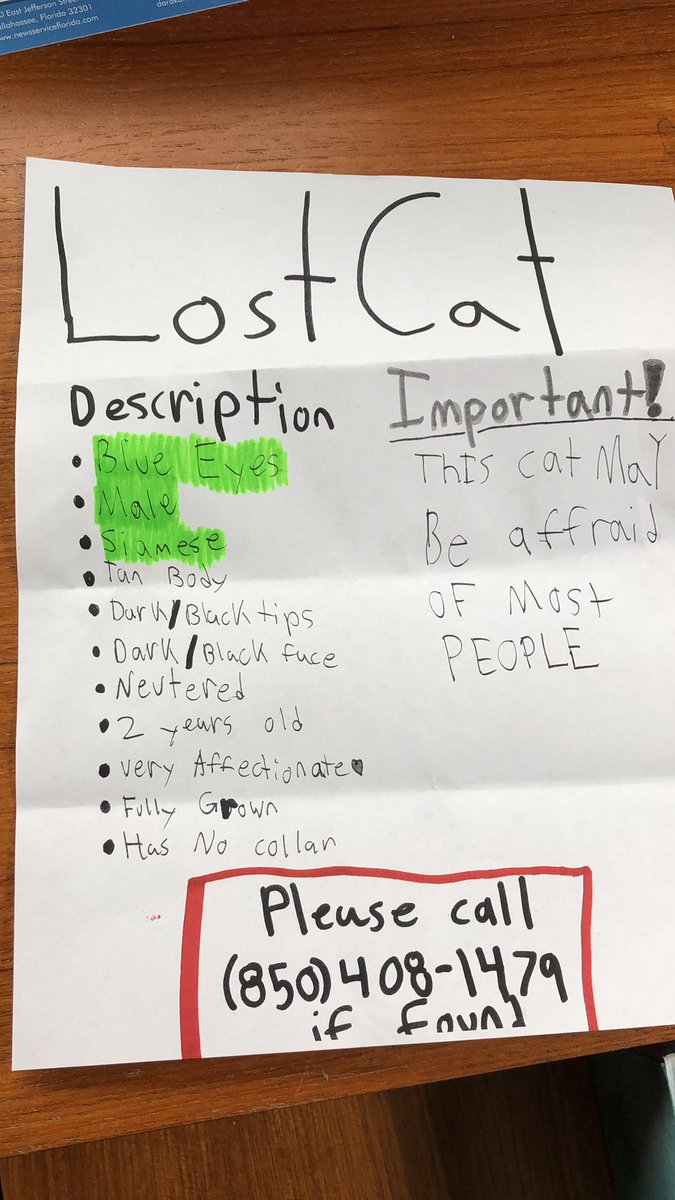 0 East Jefferson Stree
allahassee, Florida 32301
www.newsserviceflorida.com
Lost Cat
Description
• Blue Eyes
• Male
• Siamese
• Tan Body
• Dark/Black tips
• Dark/Black face
• Neutered
• 2 years old
• Very Affectionate♥
• Fully Grown
• Has No collar
Important!
This cat May
Be affraid
OF Most
PEOPLE
Please call
(850)408-1479
if found